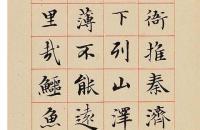 衙推秦濟
下列山澤
薄不能遠
里哉鱷魚